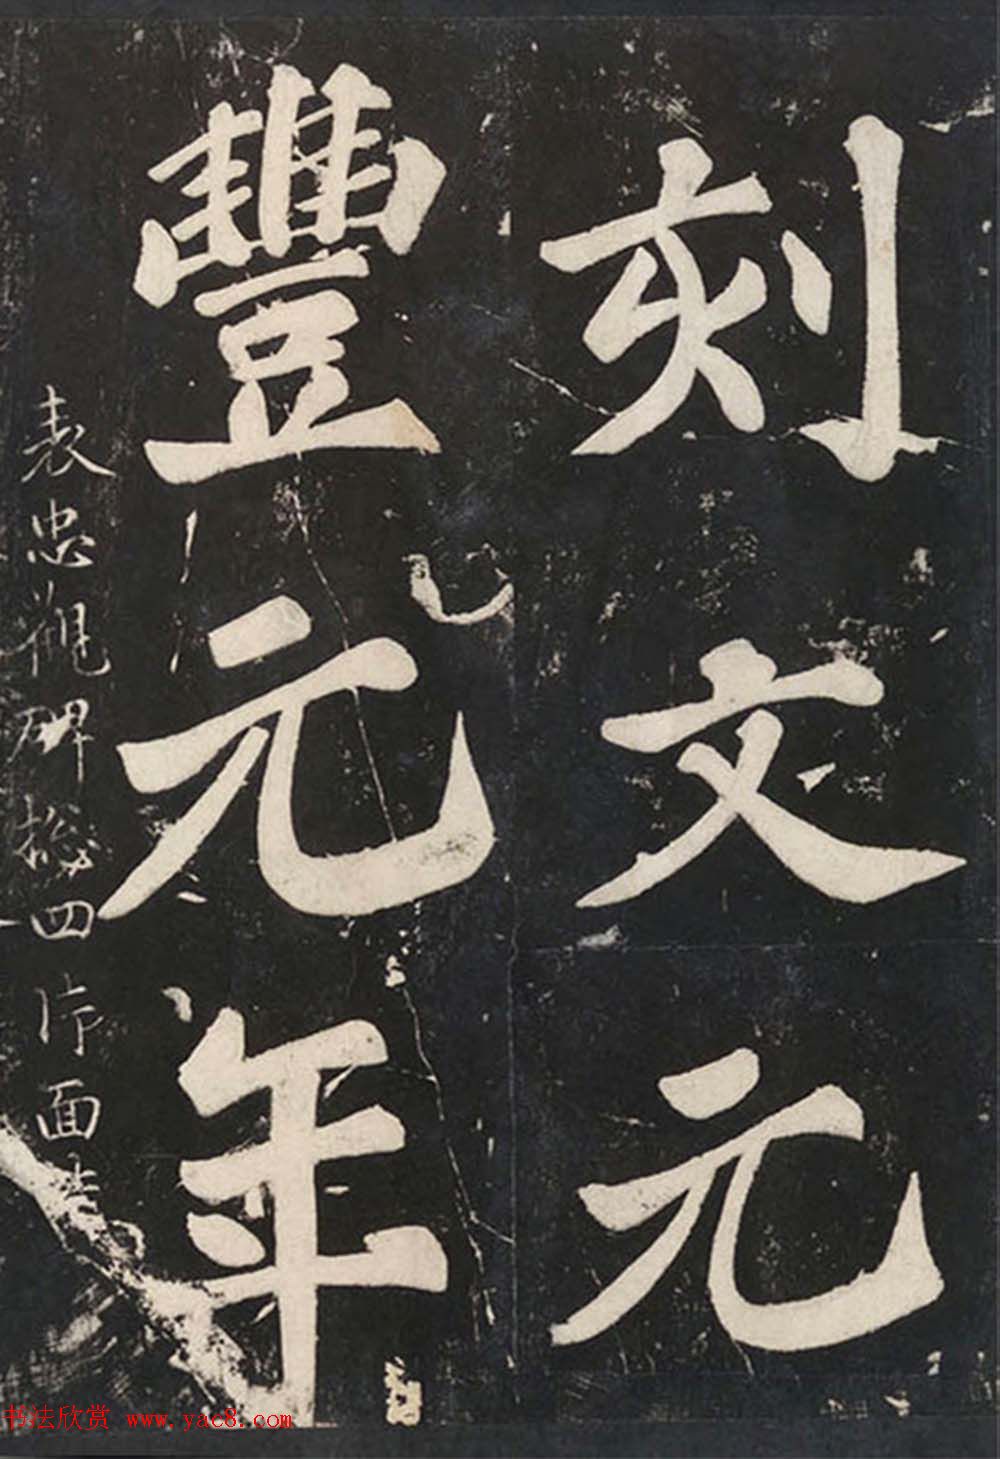 刻文元
豐元年
表忠觀碑揔四片面
书法欣赏 www.yac8.com